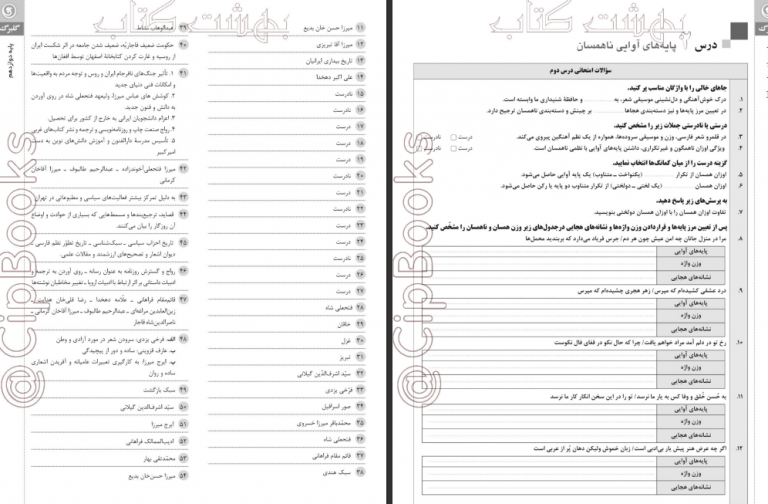 درس ۲ پایه‌های آوایی ناهمسان
سؤالات امتحانی درس دوم
جاهای خالی را با واژگان مناسب پر کنید.
۱. درک خوش‌آهنگی و دل‌نشینی موسیقی شعر، به ............ و حافظهٔ شنیداری ما وابسته است.
۲. در تعیین مرز پایه‌ها و نیز دسته‌بندی هجاها ............ بر چینش و دسته‌بندی ناهمسان ترجیح دارد.
درستی یا نادرستی جملات زیر را مشخص کنید.
۳. در قلمرو شعر فارسی، وزن و موسیقی سروده‌ها، همواره از یک نظم آهنگین پیروی می‌کند. درست نادرست
۴. ویژگی اوزان همگون و غیرتکراری، داشتن پایه‌های آوایی با نظمی ناهمسان است. درست نادرست
گزینه درست را از میان کمانک‌ها انتخاب نمایید.
۵. اوزان همسان از تکرار ............ (یکنواخت ـ متناوب) یک پایه آوایی حاصل می‌شود.
۶. اوزان همسان ............ (یک لختی ـ دولختی) از تکرار متناوب دو پایه یا رکن حاصل می‌شود.
به پرسش‌های زیر پاسخ دهید.
۷. تفاوت اوزان همسان را با اوزان همسان دولختی بنویسید.
پس از تعیین مرز پایه‌ها و قراردادن وزن واژه‌ها و نشانه‌های هجایی درجدول‌های زیر وزن همسان و ناهمسان را مشخّص کنید.
۸. مرا در منزل جانان چه امن عیش چون هر دم/ جرس فریاد می‌دارد که بربندید محمل‌ها
پایه‌های آوایی
وزن واژه
نشانه‌های هجایی
۹. درد عشقی کشیده‌ام که مپرس/ زهر هجری چشیده‌ام که مپرس
پایه‌های آوایی
وزن واژه
نشانه‌های هجایی
۱۰. رخ تو در دلم آمد مراد خواهم یافت/ چرا که حال نکو در قفای فال نکوست
پایه‌های آوایی
وزن واژه
نشانه‌های هجایی
۱۱. به حُسن خُلق و وفا کس به یار ما نرسد/ تو را در این سخن انکار کار ما نرسد
پایه‌های آوایی
وزن واژه
نشانه‌های هجایی
۱۲. اگر چه عرض هنر پیش یار بی‌ادبی است/ زبان خموش ولیکن دهان پُر از عربی است
پایه‌های آوایی
وزن واژه
نشانه‌های هجایی
بهشت کتاب
@CipBooks
۱۱ میرزا حسن خان بدیع
۱۲ میرزا آقا تبریزی
۱۳ تاریخ بیداری ایرانیان
۱۴ علی اکبر دهخدا
۱۵ نادرست
۱۶ نادرست
۱۷ درست
۱۸ درست
۱۹ درست
۲۰ نادرست
۲۱ درست
۲۲ نادرست
۲۳ درست
۲۴ درست
۲۵ نادرست
۲۶ درست
۲۷ درست
۲۸ فتحعلی شاه
۲۹ خاقان
۳۰ غزل
۳۱ تبریز
۳۲ سیّد اشرف‌الدّین گیلانی
۳۳ فرّخی یزدی
۳۴ صور اسرافیل
۳۵ محمّدباقر میرزا خسروی
۳۶ فتحعلی شاه
۳۷ قائم مقام فراهانی
۳۸ سبک هندی
۳۹ عبدالوهاب نشاط
۴۰ حکومت ضعیف قاجاریّه، ضعیف شدن جامعه در اثر شکست ایران
از روسیه و غارت کردن کتابخانهٔ اصفهان توسط افغان‌ها
۴۱ ۱. تأثیر جنگ‌های نافرجام ایران و روس و توجه مردم به واقعیت‌ها
و امکانات فنی دنیای جدید
۲. کوشش های عباس میرزا، ولیعهد فتحعلی شاه در روی آوردن
به دانش و فنون جدید.
۳. اعزام دانشجویان ایرانی به خارج از کشور برای تحصیل.
۴. رواج صنعت چاپ و روزنامه‌نویسی و ترجمه و نشر کتاب‌های غربی
۵. تأسیس مدرسهٔ دارالفنون و آموزش دانش‌های نوین به دست
امیر کبیر
۴۲ میرزا فتحعلی‌آخوندزاده ـ عبدالرحیم طالبوف ـ میرزا آقاخان
کرمانی
۴۳ به دلیل تمرکز بیشتر فعالیت‌های سیاسی و مطبوعاتی در تهران.
۴۴ قصاید، ترجیع‌بندها و مسمط‌هایی که بسیاری از حوادث و اوضاع
آن روزگار را بیان می‌کنند.
۴۵ تاریخ احزاب سیاسی ـ سبک‌شناسی ـ تاریخ تطوّر نظم فارسی ـ
دیوان اشعار و تصحیح‌های ارزشمند و مقالات علمی.
۴۶ رواج و گسترش روزنامه به عنوان رسانه ـ روی آوردن به ترجمه و
ادبیات داستانی بر اثر ارتباط با ادبیات اروپا ـ تغییر مخاطبان نوشته‌ها
۴۷ قائم‌مقام فراهانی ـ علّامه دهخدا ـ رضا قلی‌خان هدایت ـ
زین‌العابدین مراغه‌ای ـ عبدالرحیم طالبوف ـ میرزا آقاخان کرمانی ـ
ناصرالدین‌شاه قاجار
۴۸ الف. فرخی یزدی: سرودن شعر در مورد آزادی و وطن
ب. عارف قزوینی: ساده و دور از پیچیدگی
پ. ایرج میرزا: به کارگیری تعبیرات عامیانه و آفریدن اشعاری
ساده و روان
۴۹ سبک بازگشت
۵۰ سیّد اشرف‌الدین گیلانی
۵۱ ایرج میرزا
۵۲ ادیب‌الممالک فراهانی
۵۳ محمّدتقی بهار
۵۴ میرزا حسن‌خان بدیع
گلبرگ
پایه دوازدهم
بهشت کتاب
@CipBooks